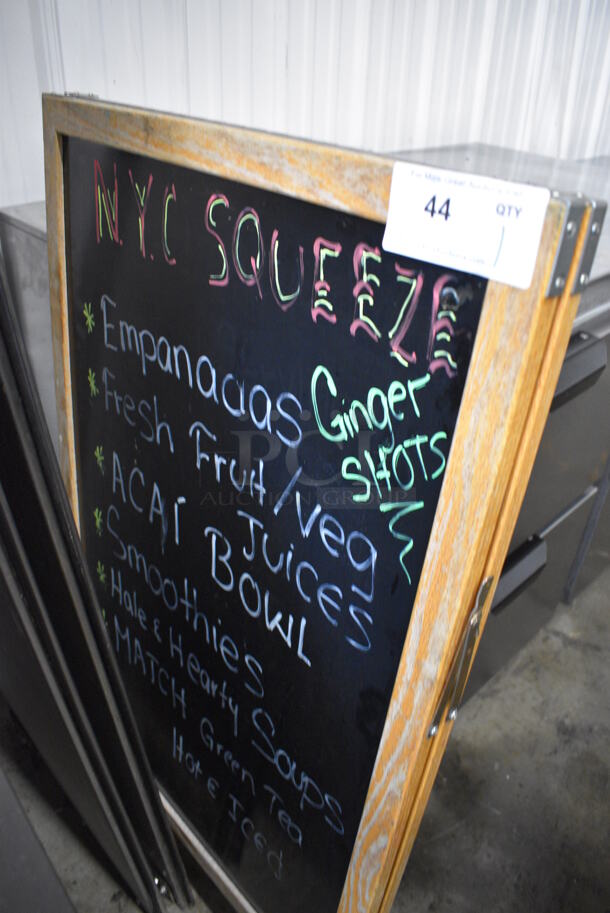 N.Y.C SQUEEZE
44 QTY
1
* Empanadas
Ginger
SHOTS
* Fresh Fruit/Veg
Juices
* ACAI BOWL
* Smoothies
* Hale & Hearty Soups
* MATCH Green Tea
Hot & Iced
PCI
AUCTION GROUP